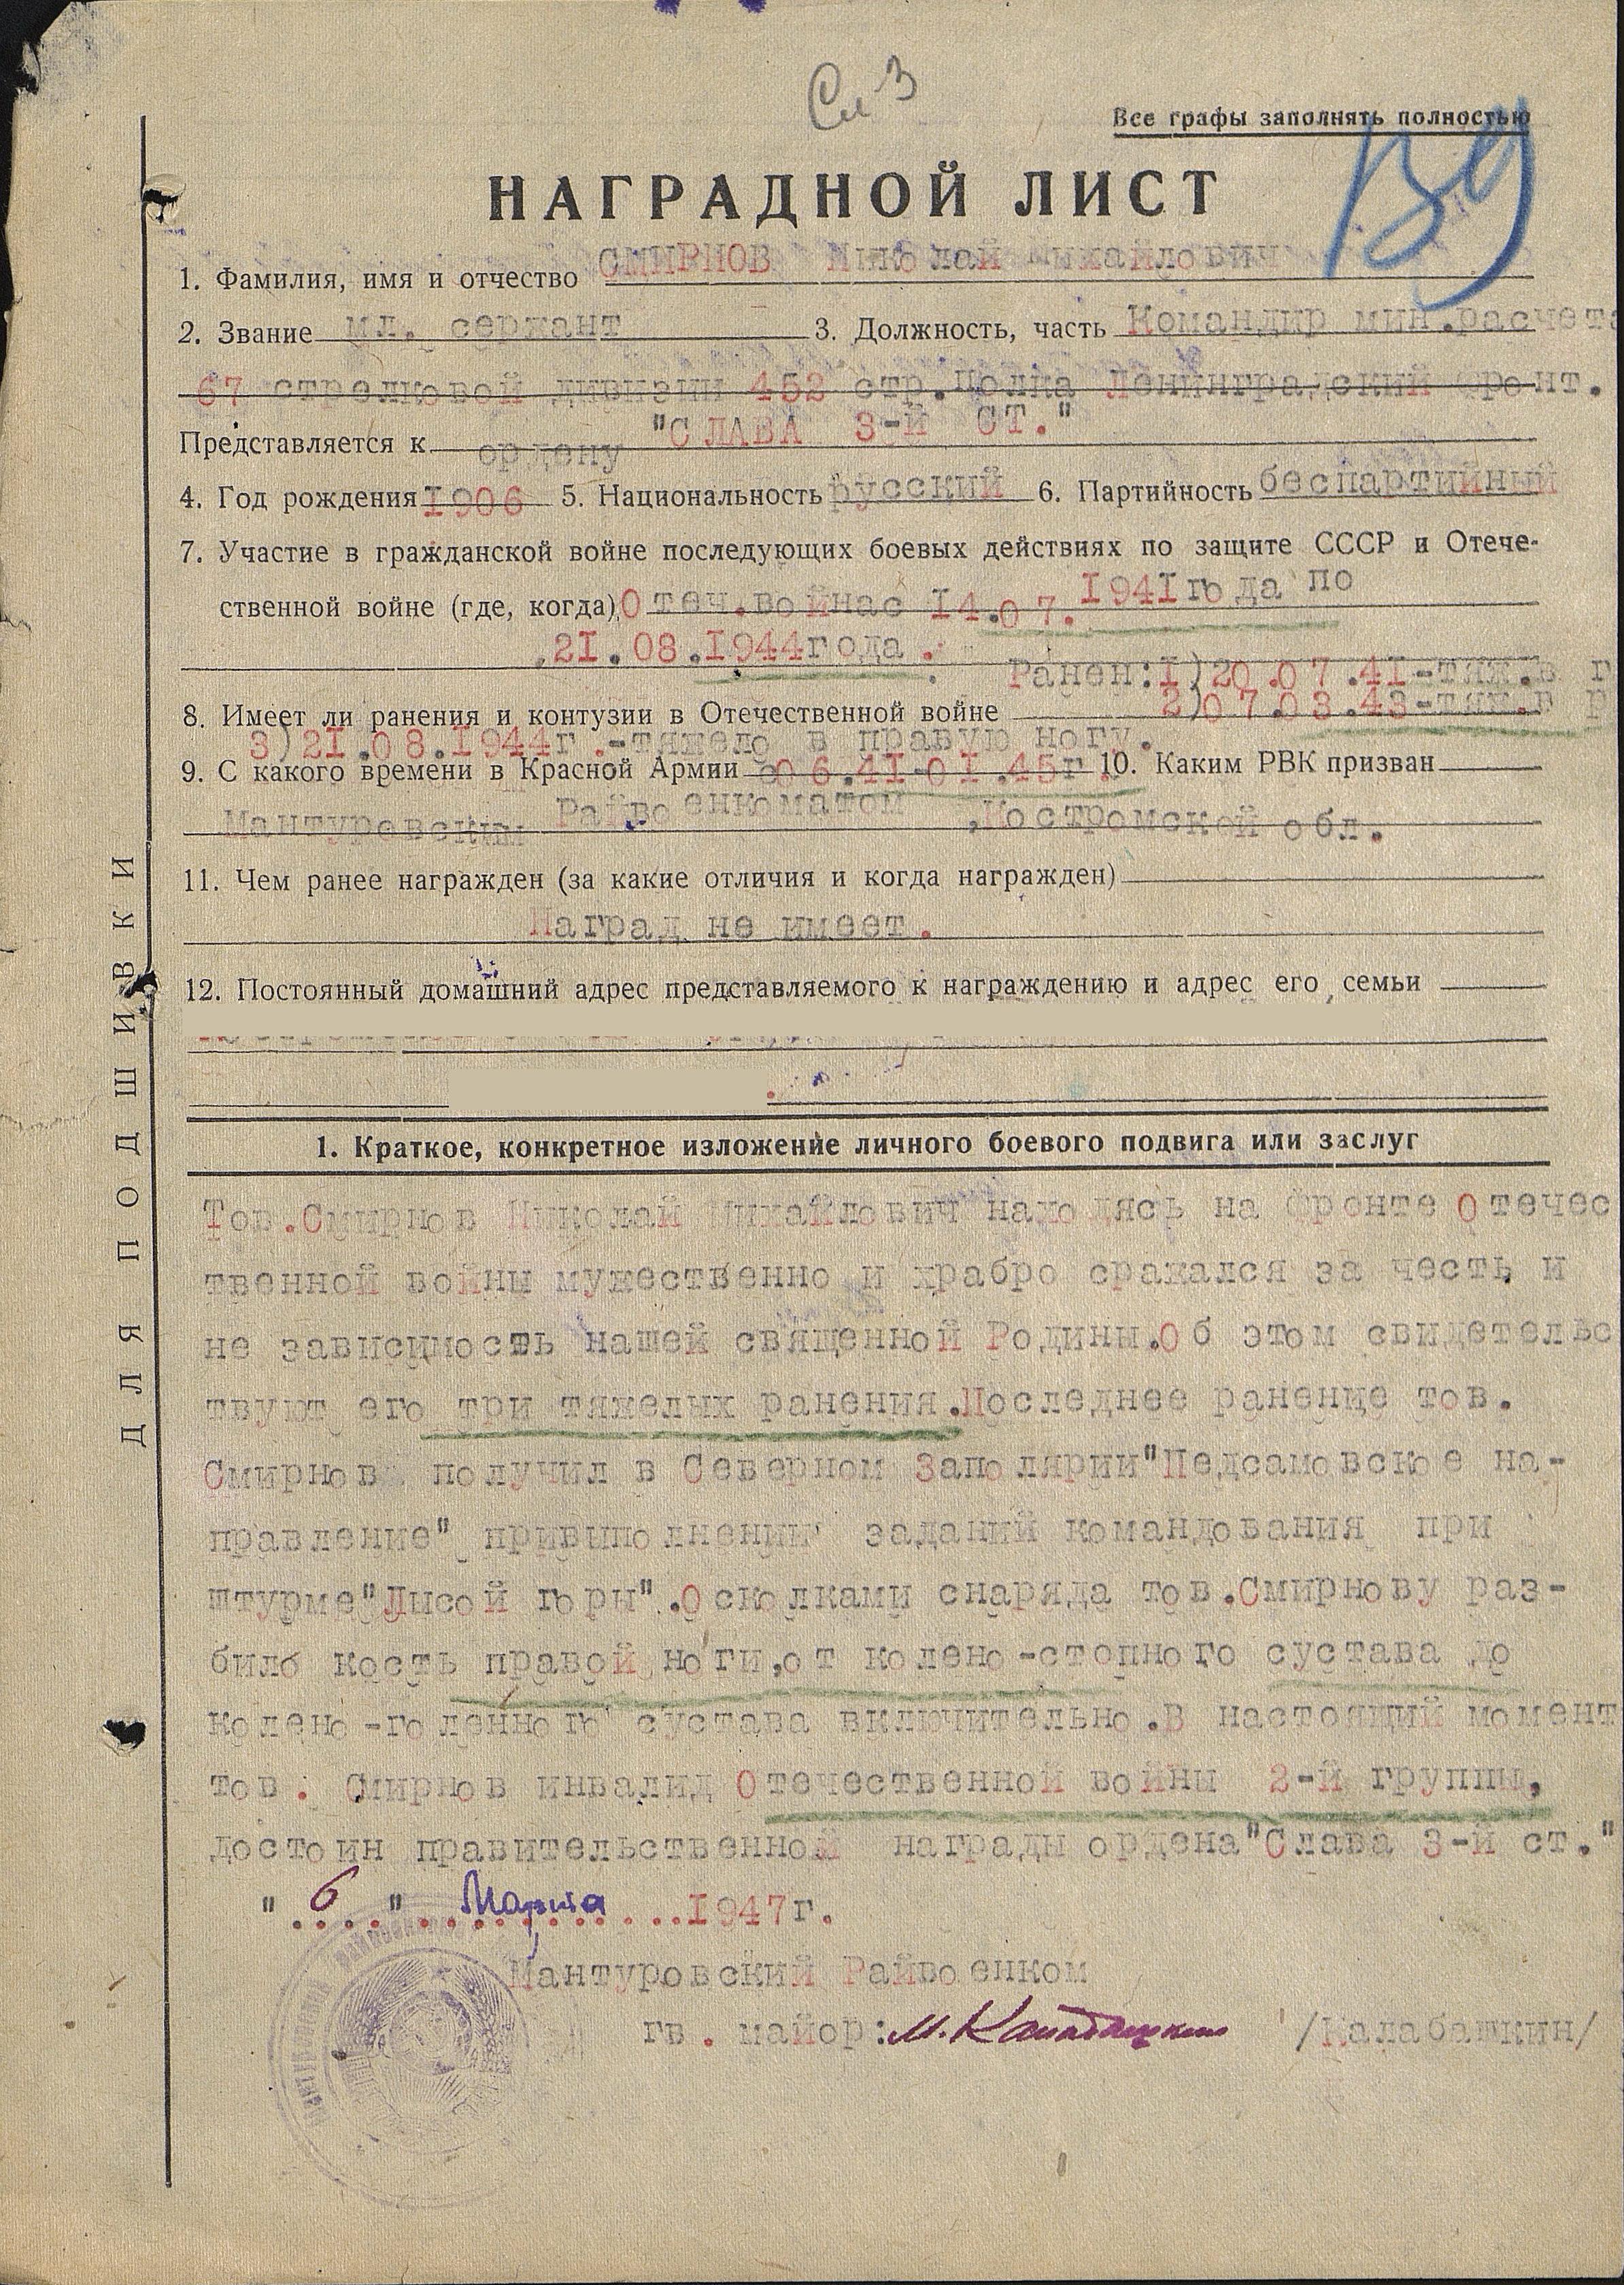 См 3
Все графы заполнять полностью
НАГРАДНОЙ ЛИСТ
1. Фамилия, имя и отчество СМИРНОВ Николай Михайлович
2. Звание мл. сержант 3. Должность, часть Командир мин.расчет
67 стрелковой дивизии 452 стр.полка Ленинградский фронт.
Представляется к ордену "СЛАВА 3-й СТ."
4. Год рождения 1906 5. Национальность русский 6. Партийность беспартийный
7. Участие в гражданской войне последующих боевых действиях по защите СССР и Отече-
ственной войне (где, когда) Отеч.война с 14.07.1941 года по
21.08.1944 года.
Ранен: 1) 20.07.41-тяж.в г
8. Имеет ли ранения и контузии в Отечественной войне 2) 07.03.43-тяж.в
3) 21.08.1944г.-тяжело в правую ногу.
9. С какого времени в Красной Армии с 06.41-01.45г. 10. Каким РВК призван
Мантуровским Райвоенкоматом, Костромской обл.
11. Чем ранее награжден (за какие отличия и когда награжден)
Наград не имеет.
12. Постоянный домашний адрес представляемого к награждению и адрес его семьи
ДЛЯ ПОДШИВКИ
1. Краткое, конкретное изложение личного боевого подвига или заслуг
Тов.Смирнов Николай Михайлович находясь на фронте Отечес
твенной войны мужественно и храбро сражался за честь и
не зависимость нашей священной Родины.Об этом свидетельс
твуют его три тяжелых ранения.Последнее ранение тов.
Смирнов получил в Северном Заполярии"Педсамовское на-
правление" привыполнении заданий командования при
штурме"Лысой горы".Осколками снаряда тов.Смирнову раз-
било кость правой ноги,от колено-стопного сустава до
колено-голенного сустава включительно.В настоящий момент
тов. Смирнов инвалид Отечественной войны 2-й группы,
достоин правительственной награды ордена"Слава 3-й ст."
"6" Марта 1947г.
Мантуровский Райвоенком
гв. майор: М. Калабашкин /Калабашкин/